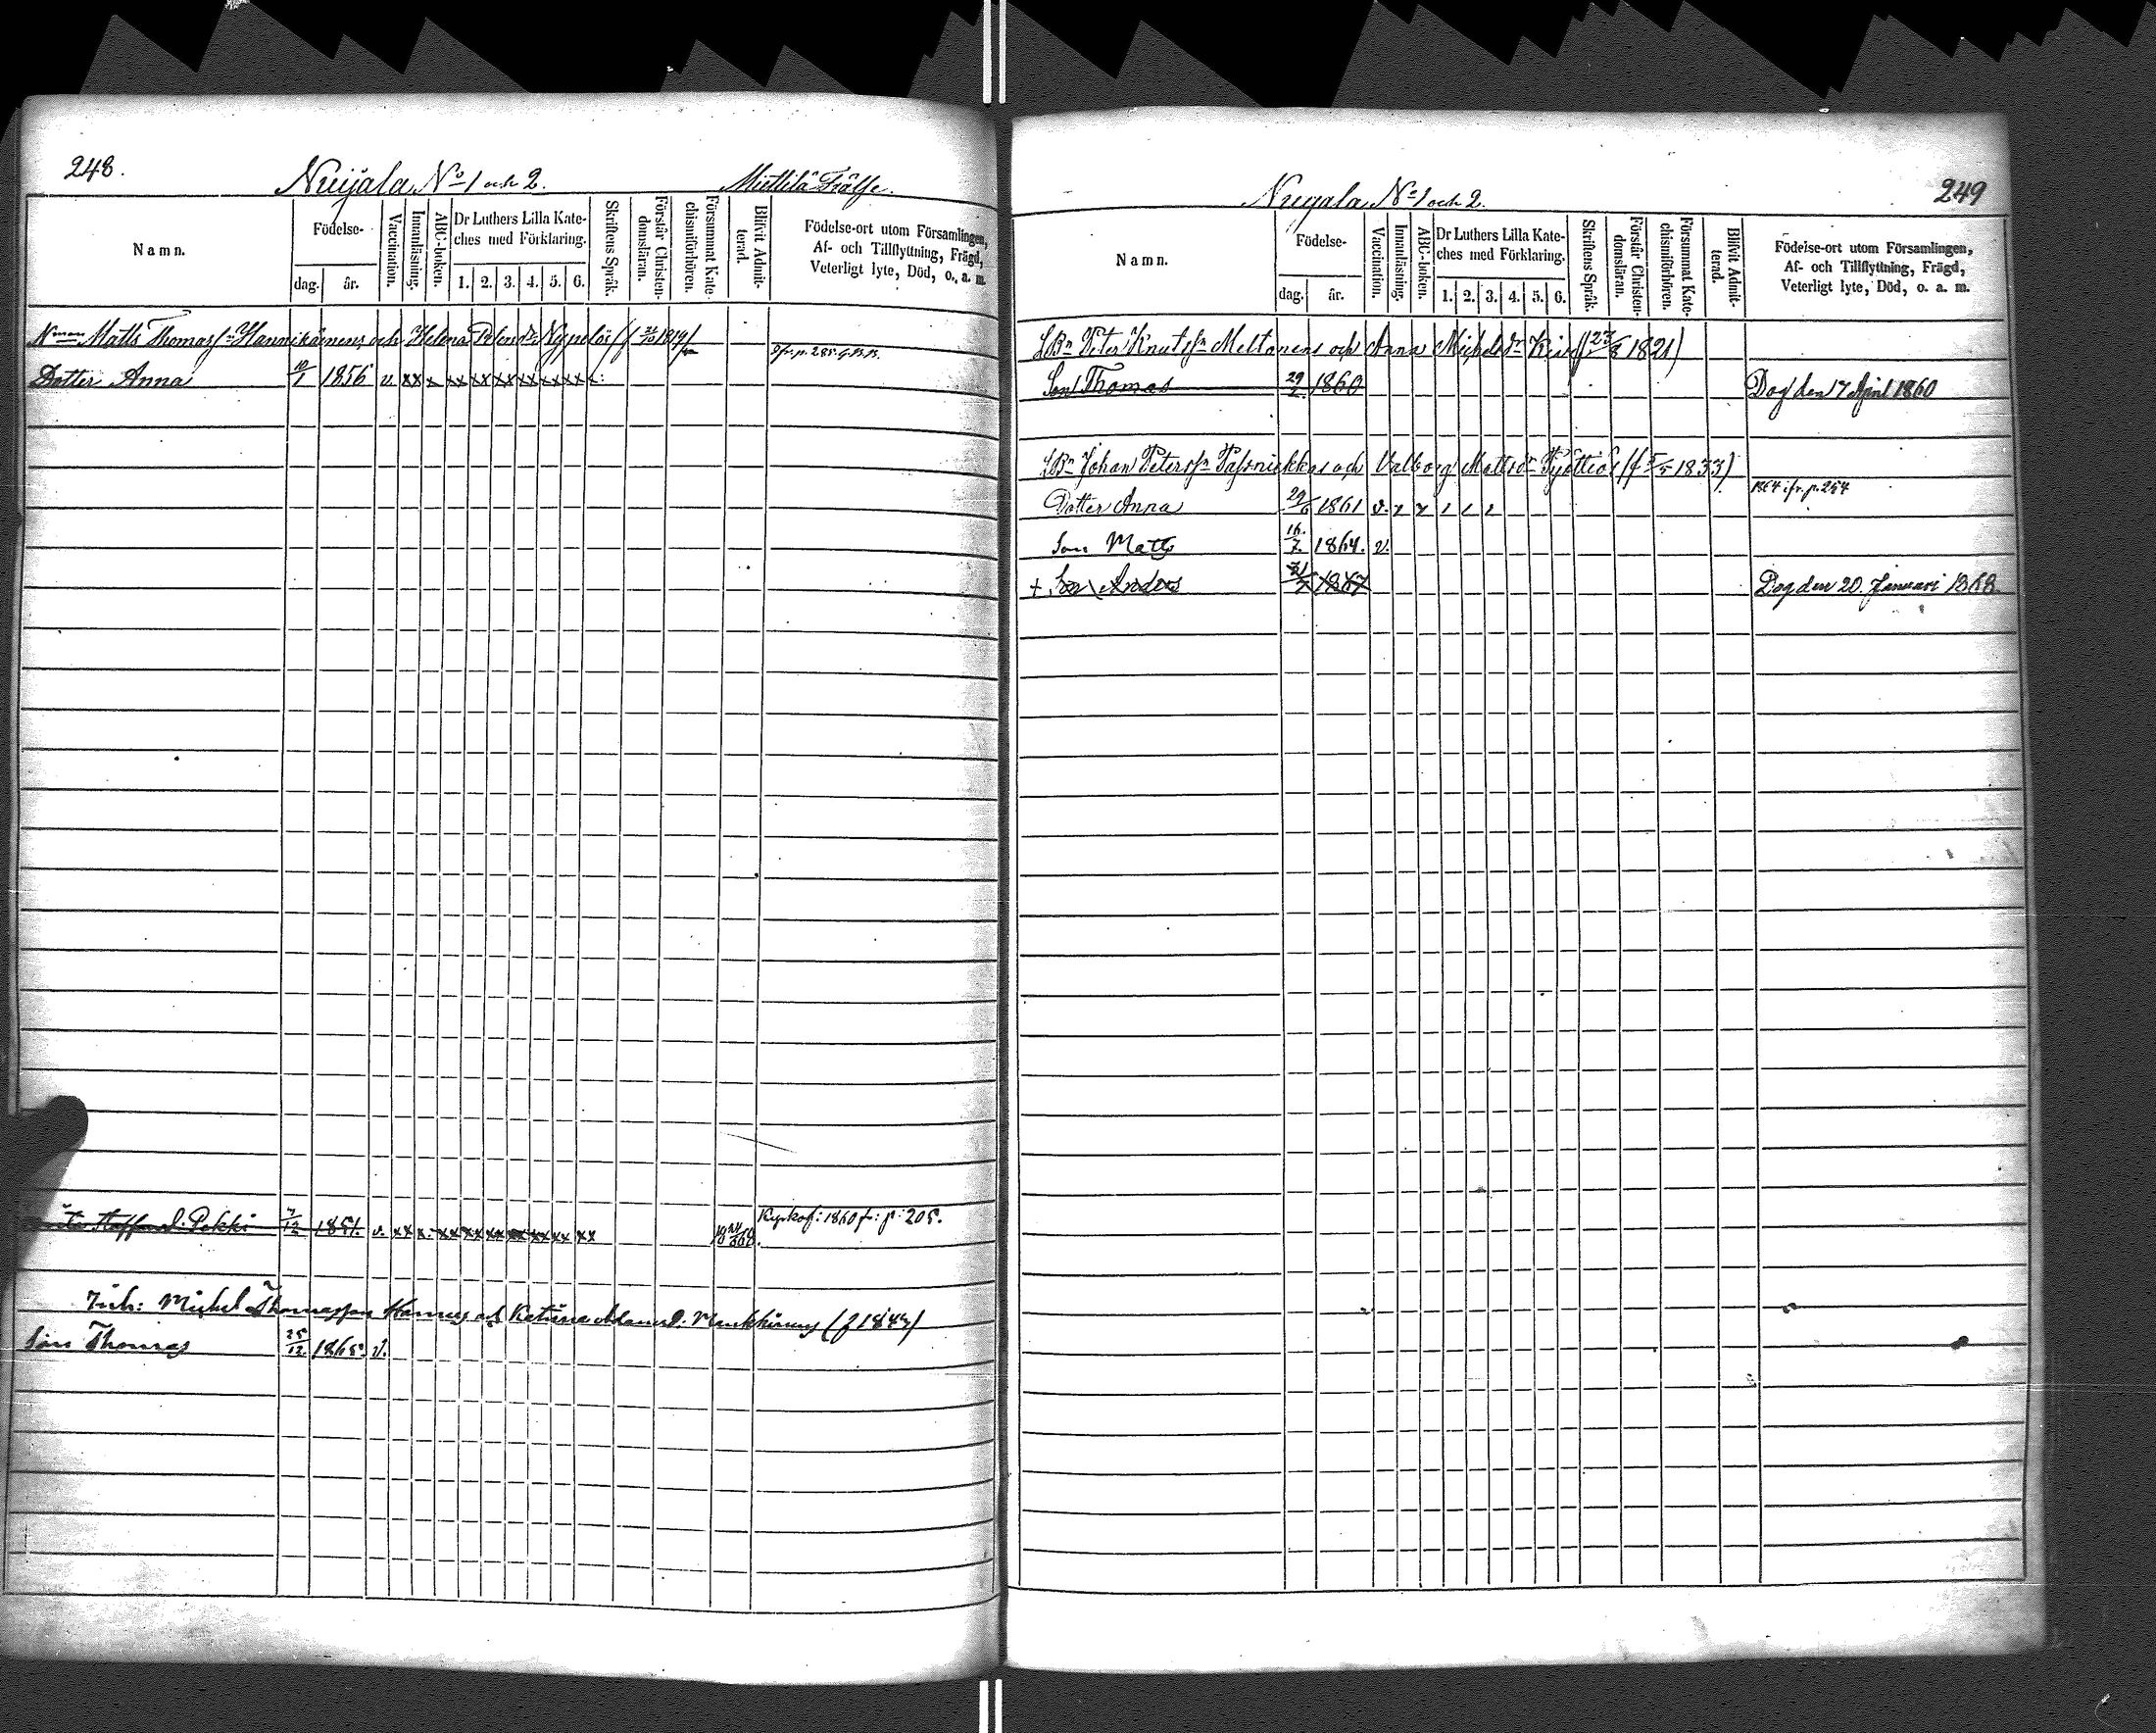 248.
Nuijala No 1 och 2.
Miettilä Frälse.
Namn.
Födelse-
dag.
år.
Vaccination.
Innanläsning.
ABC-boken.
Dr Luthers Lilla Kate-
ches med Förklaring.
1. 2. 3. 4. 5. 6.
Skriftens Språk.
Förstår Christen-
domsläran.
Försummat Kate-
chismiförhören.
Blifvit Admit-
terad.
Födelse-ort utom Församlingen,
Af- och Tillflyttning, Frägd,
Veterligt lyte, Död, o. a. m.
Matts Thomass:n Hannikainens och Helena
Dotter Anna 10/1 1856 v. xx x xx xx xx xx xx xx
p. 285
Pekki 7/12 1851. v. xx x. xx xx xx xx xx xx xx
1860 fr: p: 205.
Inh: Michel Thomasson och Katrina Adamsd.
Son Thomas 25/12 1865. v.
249
Nuijala No 1 och 2.
Namn.
Födelse-
dag.
år.
Vaccination.
Innanläsning.
ABC-boken.
Dr Luthers Lilla Kate-
ches med Förklaring.
1. 2. 3. 4. 5. 6.
Skriftens Språk.
Förstår Christen-
domsläran.
Försummat Kate-
chismiförhören.
Blifvit Admit-
terad.
Födelse-ort utom Församlingen,
Af- och Tillflyttning, Frägd,
Veterligt lyte, Död, o. a. m.
Peter Knutss:n Meltonens och Anna Michelsdr 1821)
Son Thomas 29/2 1860 Dog den 17 April 1860
Johan Peterss:n och Valborg Mattsdr (f 5/5 1833)
1864 fr. p. 254
Dotter Anna 29/6 1861 v.
Son Matts 16./7. 1864. v.
+ Son Anders 1867 Dog den 20. Januari 1868.